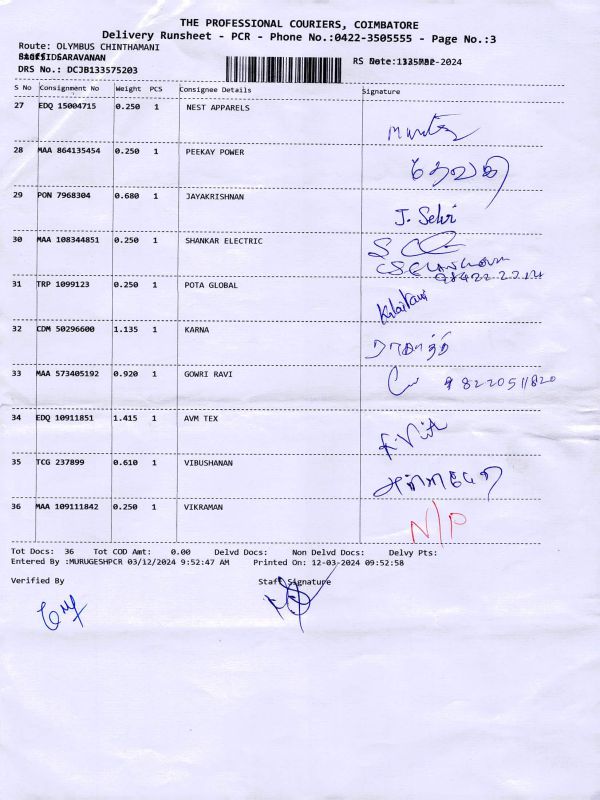 THE PROFESSIONAL COURIERS, COIMBATORE
Delivery Runsheet - PCR - Phone No.:0422-3505555 - Page No.:3
Route: OLYMBUS CHINTHAMANI
SARAVANAN
DRS No.: DCJB133575203
S No Consignment No Weight PCS Consignee Details Signature
27 EDQ 15004715 0.250 1 NEST APPARELS
28 MAA 864135454 0.250 1 PEEKAY POWER தேவகி
29 PON 7968304 0.680 1 JAYAKRISHNAN J. Selvi
30 MAA 108344851 0.250 1 SHANKAR ELECTRIC
31 TRP 1099123 0.250 1 POTA GLOBAL
32 CDM 50296600 1.135 1 KARNA
33 MAA 573405192 0.920 1 GOWRI RAVI 9822051820
34 EDQ 10911851 1.415 1 AVM TEX
35 TCG 237899 0.610 1 VIBUSHANAN
36 MAA 109111842 0.250 1 VIKRAMAN N/P
Tot Docs: 36 Tot COD Amt: 0.00 Delvd Docs: Non Delvd Docs: Delvy Pts:
Entered By :MURUGESHPCR 03/12/2024 9:52:47 AM Printed On: 12-03-2024 09:52:58
Verified By Staff Signature